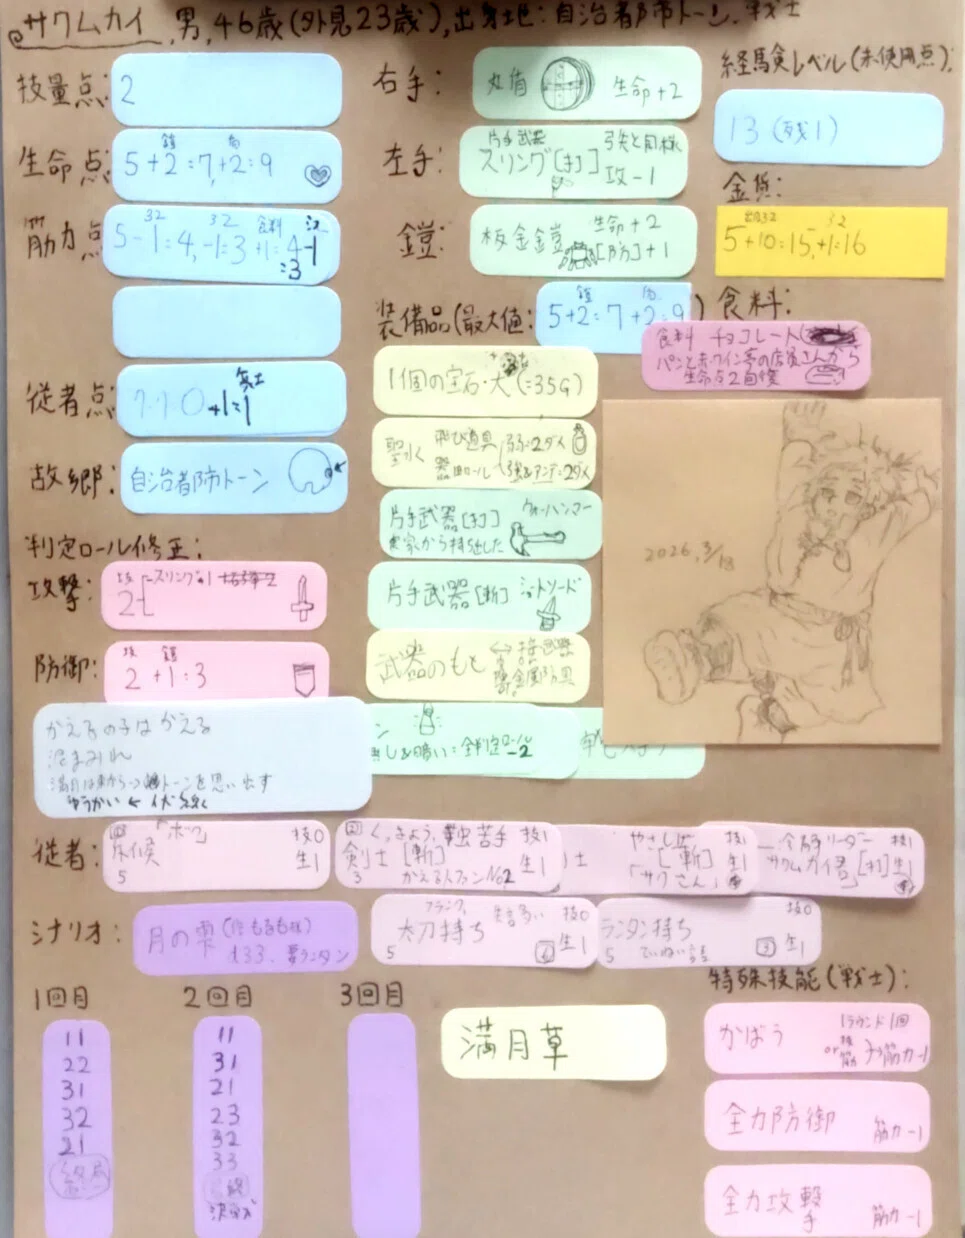 サクムカイ, 男, 46歳(外見23歳), 出身地: 自治都市トーン, 戦士
技量点: 2
生命点: 5+2=7,+2=9
鎧 盾
筋力点 5-1=4,-1=3 +1=4-1=3
32 32 食料
従者点: 7 7 0+1=1
兵士
故郷: 自治都市トーン
判定ロール修正:
攻撃: 技 2
スリング-1
防御: 技 鎧 2+1=3
右手: 丸盾 生命+2
左手: 片手武器 スリング[打] 弓矢と同様 攻-1
鎧: 板金鎧 生命+2 [防]+1
装備品(最大値: 5+2=7+2=9)
鎧 盾
1個の宝石・大(=35G)
聖水 飛び道具
片手武器[打] ウォーハンマー
実家から持ち出した
片手武器[斬] ショートソード
武器のもと
暗い=全判定ロール-2
経験レベル(未使用点):
13(残1)
金貨:
5+10=15,+1=16
食料:
食料 チョコレート
パンと赤ワイン亭の店員さんから
生命点2回復
2026.3/18
かえるの子はかえる
泥まみれ
満月は昔からトーンを思い出す
ゆうかい
従者: 斥候 「ボク」 技0 生1
5
剣士[斬] 虫苦手 技1 生1
3 かえる人ファンNo.2
やさしげ [斬] 技1 生1
「サクさん」
リーダー 技1
サクムカイ君」[打] 生1
シナリオ: 月の雫
d33. ランタン
フランク,
太刀持ち 技0 生1
5
ランタン持ち 技0 生1
5 ていねい語
1回目
11
22
31
32
21
終局
2回目
11
31
21
23
32
33
終
決戦
3回目
満月草
特殊技能(戦士):
かばう 1ラウンド1回
or 技 筋 筋力-1
全力防御 筋力-1
全力攻撃 筋力-1